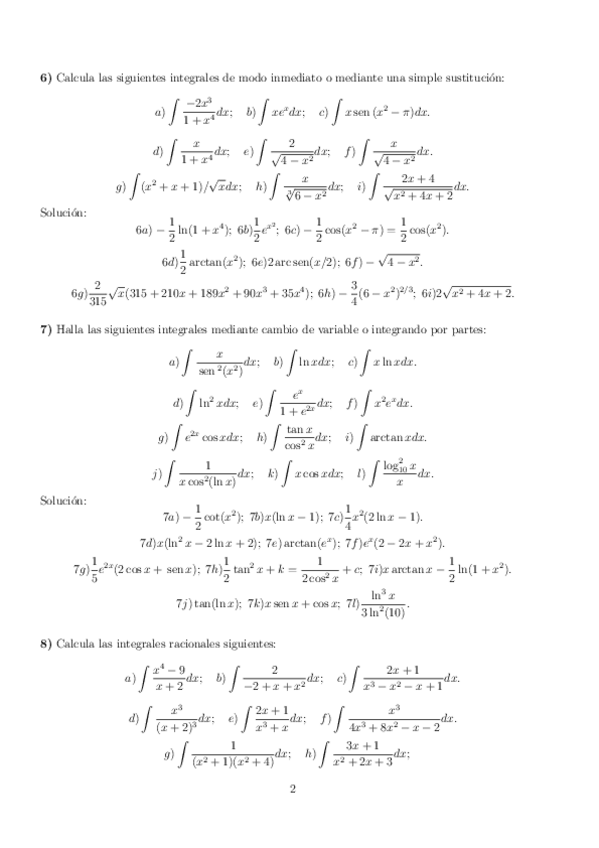 6) Calcula las siguientes integrales de modo inmediato o mediante una simple sustitución:
a) ∫ −2x³/(1 + x⁴) dx; b) ∫ xeˣdx; c) ∫ x sen (x² − π)dx.
d) ∫ x/(1 + x⁴) dx; e) ∫ 2/√(4 − x²) dx; f) ∫ x/√(4 − x²) dx.
g) ∫ (x² + x + 1)/√x dx; h) ∫ x/∛(6 − x²) dx; i) ∫ (2x + 4)/√(x² + 4x + 2) dx.
Solución:
6a) − 1/2 ln(1 + x⁴); 6b) 1/2 e^(x²); 6c) − 1/2 cos(x² − π) = 1/2 cos(x²).
6d) 1/2 arctan(x²); 6e) 2 arc sen(x/2); 6f) − √(4 − x²).
6g) 2/315 √x(315 + 210x + 189x² + 90x³ + 35x⁴); 6h) − 3/4 (6 − x²)^(2/3); 6i) 2√(x² + 4x + 2).
7) Halla las siguientes integrales mediante cambio de variable o integrando por partes:
a) ∫ x/sen²(x²) dx; b) ∫ ln xdx; c) ∫ x ln xdx.
d) ∫ ln² xdx; e) ∫ eˣ/(1 + e²ˣ) dx; f) ∫ x²eˣdx.
g) ∫ e²ˣ cos xdx; h) ∫ tan x/cos² x dx; i) ∫ arctan xdx.
j) ∫ 1/(x cos²(ln x)) dx; k) ∫ x cos xdx; l) ∫ log₁₀² x/x dx.
Solución:
7a) − 1/2 cot(x²); 7b) x(ln x − 1); 7c) 1/4 x²(2 ln x − 1).
7d) x(ln² x − 2 ln x + 2); 7e) arctan(eˣ); 7f) eˣ(2 − 2x + x²).
7g) 1/5 e²ˣ(2 cos x + sen x); 7h) 1/2 tan² x + k = 1/(2 cos² x) + c; 7i) x arctan x − 1/2 ln(1 + x²).
7j) tan(ln x); 7k) x sen x + cos x; 7l) ln³ x/(3 ln²(10)).
8) Calcula las integrales racionales siguientes:
a) ∫ (x⁴ − 9)/(x + 2) dx; b) ∫ 2/(−2 + x + x²) dx; c) ∫ (2x + 1)/(x³ − x² − x + 1) dx.
d) ∫ x³/(x + 2)³ dx; e) ∫ (2x + 1)/(x³ + x) dx; f) ∫ x³/(4x³ + 8x² − x − 2) dx.
g) ∫ 1/((x² + 1)(x² + 4)) dx; h) ∫ (3x + 1)/(x² + 2x + 3) dx;
2